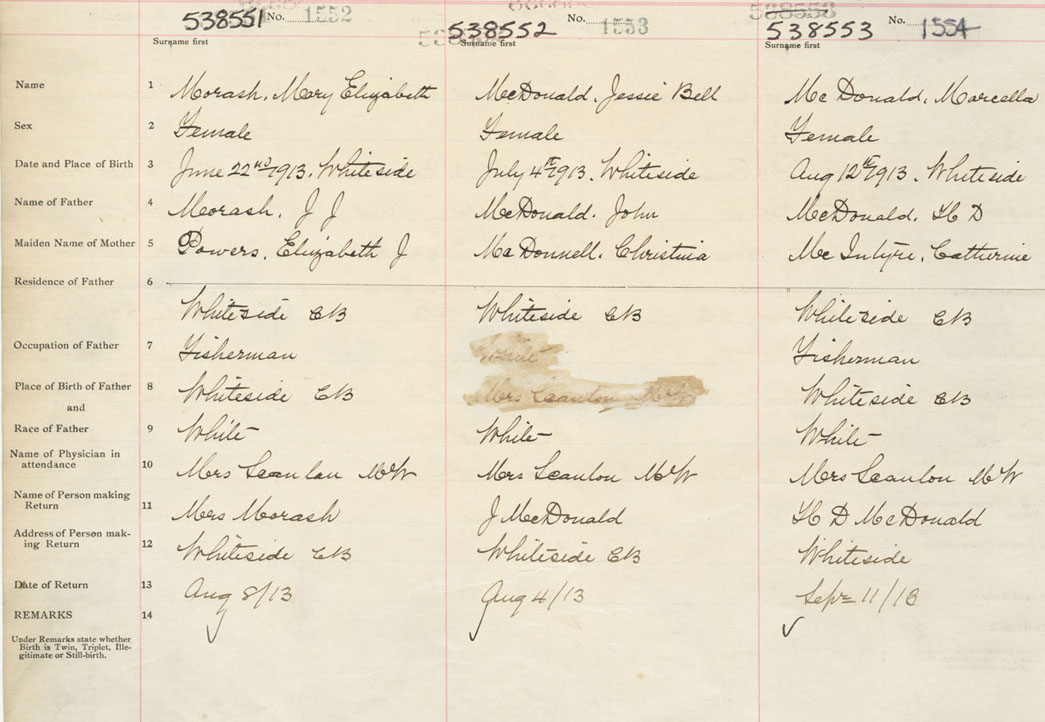 538551 No. 1552 538552 No. 1553 538553 No. 1554
Surname first Surname first Surname first
Name 1 Morash, Mary Elizabeth McDonald, Jessie Bell McDonald, Marcella
Sex 2 Female Female Female
Date and Place of Birth 3 June 22nd 1913, Whiteside July 4th 1913, Whiteside Aug 12th 1913, Whiteside
Name of Father 4 Morash, J J McDonald, John McDonald, H D
Maiden Name of Mother 5 Powers, Elizabeth J McDonnell, Christina McIntyre, Catherine
Residence of Father 6
Whiteside CB Whiteside CB Whiteside CB
Occupation of Father 7 Fisherman White Fisherman
Place of Birth of Father 8 Whiteside CB Mrs Scanlon MW Whiteside CB
and
Race of Father 9 White White White
Name of Physician in
attendance 10 Mrs Scanlan MW Mrs Scanlon MW Mrs Scanlon MW
Name of Person making
Return 11 Mrs Morash J McDonald H D McDonald
Address of Person mak-
ing Return 12 Whiteside CB Whiteside CB Whiteside
Date of Return 13 Aug 8/13 Aug 4/13 Sept 11/13
REMARKS 14
Under Remarks state whether
Birth is Twin, Triplet, Ille-
gitimate or Still-birth.